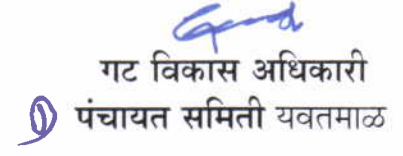 गट विकास अधिकारी
पंचायत समिती यवतमाळ